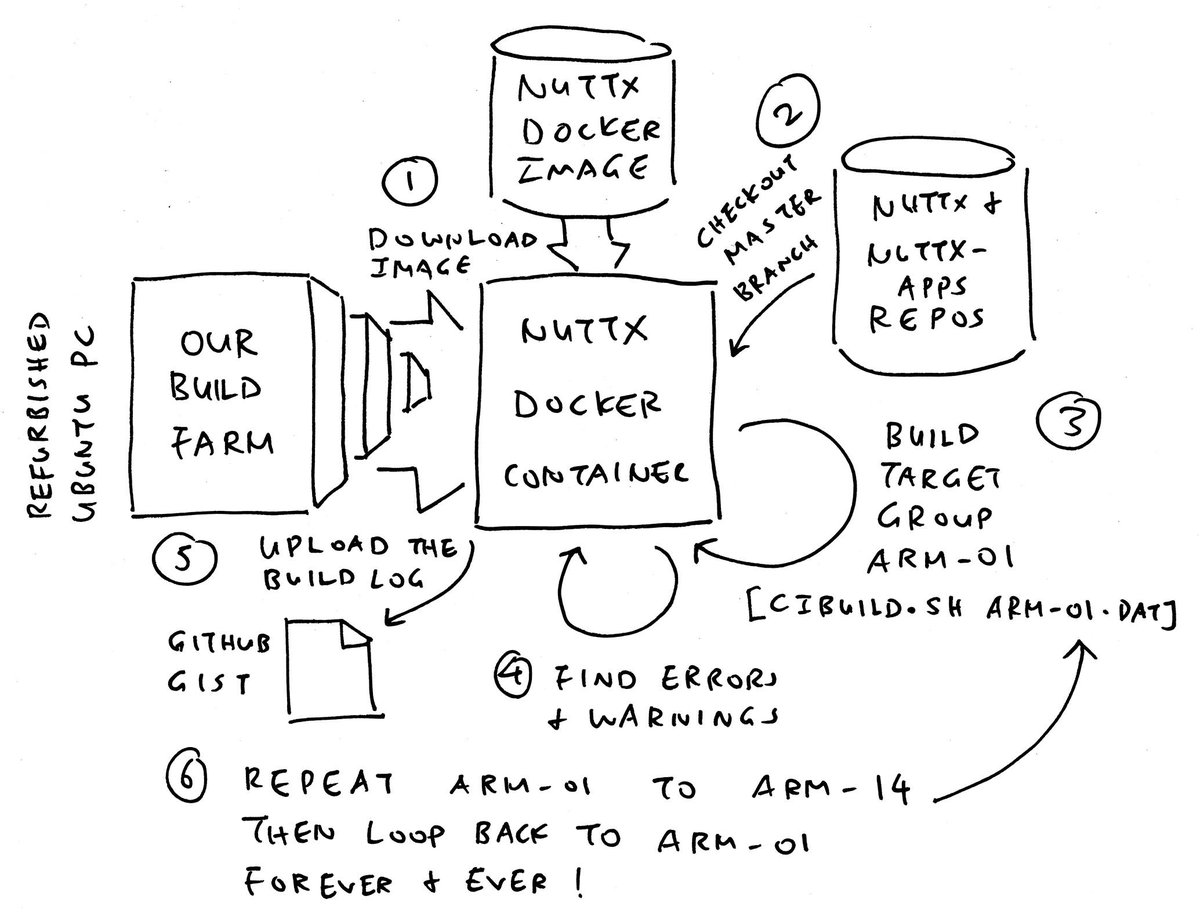 NUTTX
DOCKER
IMAGE
1
DOWNLOAD
IMAGE
2
CHECKOUT
MASTER
BRANCH
NUTTX &
NUTTX-
APPS
REPOS
REFURBISHED
UBUNTU PC
OUR
BUILD
FARM
NUTTX
DOCKER
CONTAINER
3
BUILD
TARGET
GROUP
ARM-01
[CIBUILD.SH ARM-01.DAT]
4
FIND ERRORS
& WARNINGS
5
UPLOAD THE
BUILD LOG
GITHUB
GIST
6
REPEAT ARM-01 TO ARM-14
THEN LOOP BACK TO ARM-01
FOREVER & EVER!